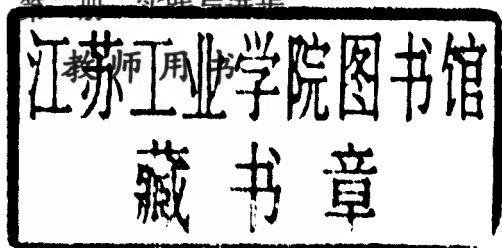 教师用书
江苏工业学院图书馆
藏书章